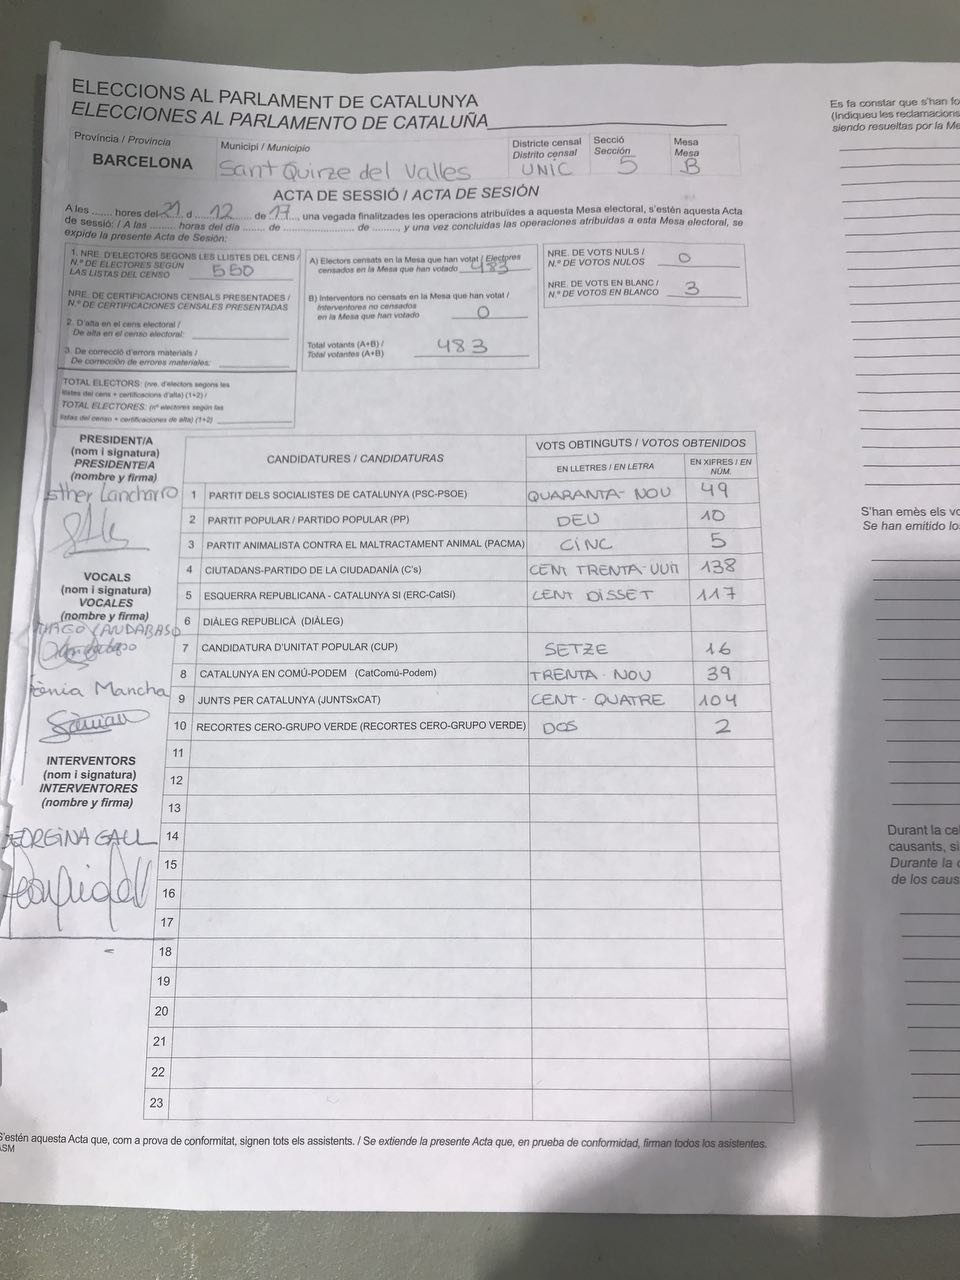 ELECCIONS AL PARLAMENT DE CATALUNYA
ELECCIONES AL PARLAMENTO DE CATALUÑA
Província / Provincia
BARCELONA
Municipi / Municipio
Sant Quirze del Valles
Districte censal
Distrito censal
UNIC
Secció
Sección
5
Mesa
Mesa
B
ACTA DE SESSIÓ / ACTA DE SESIÓN
A les ....... hores del 21 d 12 de 17, una vegada finalitzades les operacions atribuïdes a aquesta Mesa electoral, s'estén aquesta Acta
de sessió: / A las ......... horas del día ....... de ................. de ........, y una vez concluidas las operaciones atribuidas a esta Mesa electoral, se
expide la presente Acta de Sesión:
1. NRE. D'ELECTORS SEGONS LES LLISTES DEL CENS /
N.º DE ELECTORES SEGÚN
LAS LISTAS DEL CENSO 550
NRE. DE CERTIFICACIONS CENSALS PRESENTADES /
N.º DE CERTIFICACIONES CENSALES PRESENTADAS
2. D'alta en el cens electoral /
De alta en el censo electoral:
3. De correcció d'errors materials /
De corrección de errores materiales:
TOTAL ELECTORS: (nre. d'electors segons les
llistes del cens + certificacions d'alta) (1+2) /
TOTAL ELECTORES: (nº electores según las
listas del censo + certificaciones de alta) (1+2)
A) Electors censats en la Mesa que han votat / Electores
censados en la Mesa que han votado 483
B) Interventors no censats en la Mesa que han votat /
Interventores no censados
en la Mesa que han votado 0
Total votants (A+B) /
Total votantes (A+B) 483
NRE. DE VOTS NULS /
N.º DE VOTOS NULOS 0
NRE. DE VOTS EN BLANC /
N.º DE VOTOS EN BLANCO 3
PRESIDENT/A
(nom i signatura)
PRESIDENTE/A
(nombre y firma)
sther Lancharro
VOCALS
(nom i signatura)
VOCALES
(nombre y firma)
Mancha
INTERVENTORS
(nom i signatura)
INTERVENTORES
(nombre y firma)
EORGINA GALL
CANDIDATURES / CANDIDATURAS
VOTS OBTINGUTS / VOTOS OBTENIDOS
EN LLETRES / EN LETRA
EN XIFRES / EN NÚM.
1 PARTIT DELS SOCIALISTES DE CATALUNYA (PSC-PSOE) QUARANTA-NOU 49
2 PARTIT POPULAR / PARTIDO POPULAR (PP) DEU 10
3 PARTIT ANIMALISTA CONTRA EL MALTRACTAMENT ANIMAL (PACMA) CINC 5
4 CIUTADANS-PARTIDO DE LA CIUDADANÍA (C's) CENT TRENTA-VUIT 138
5 ESQUERRA REPUBLICANA - CATALUNYA SI (ERC-CatSí) CENT DISSET 117
6 DIÀLEG REPUBLICÀ (DIÀLEG)
7 CANDIDATURA D'UNITAT POPULAR (CUP) SETZE 16
8 CATALUNYA EN COMÚ-PODEM (CatComú-Podem) TRENTA NOU 39
9 JUNTS PER CATALUNYA (JUNTSxCAT) CENT-QUATRE 104
10 RECORTES CERO-GRUPO VERDE (RECORTES CERO-GRUPO VERDE) DOS 2
11
12
13
14
15
16
17
18
19
20
21
22
23
S'estén aquesta Acta que, com a prova de conformitat, signen tots els assistents. / Se extiende la presente Acta que, en prueba de conformidad, firman todos los asistentes.
ASM
Es fa constar que s'han fo
(Indiqueu les reclamacions
siendo resueltas por la Me
S'han emès els vo
Se han emitido lo
Durant la cel
causants, si
Durante la c
de los caus